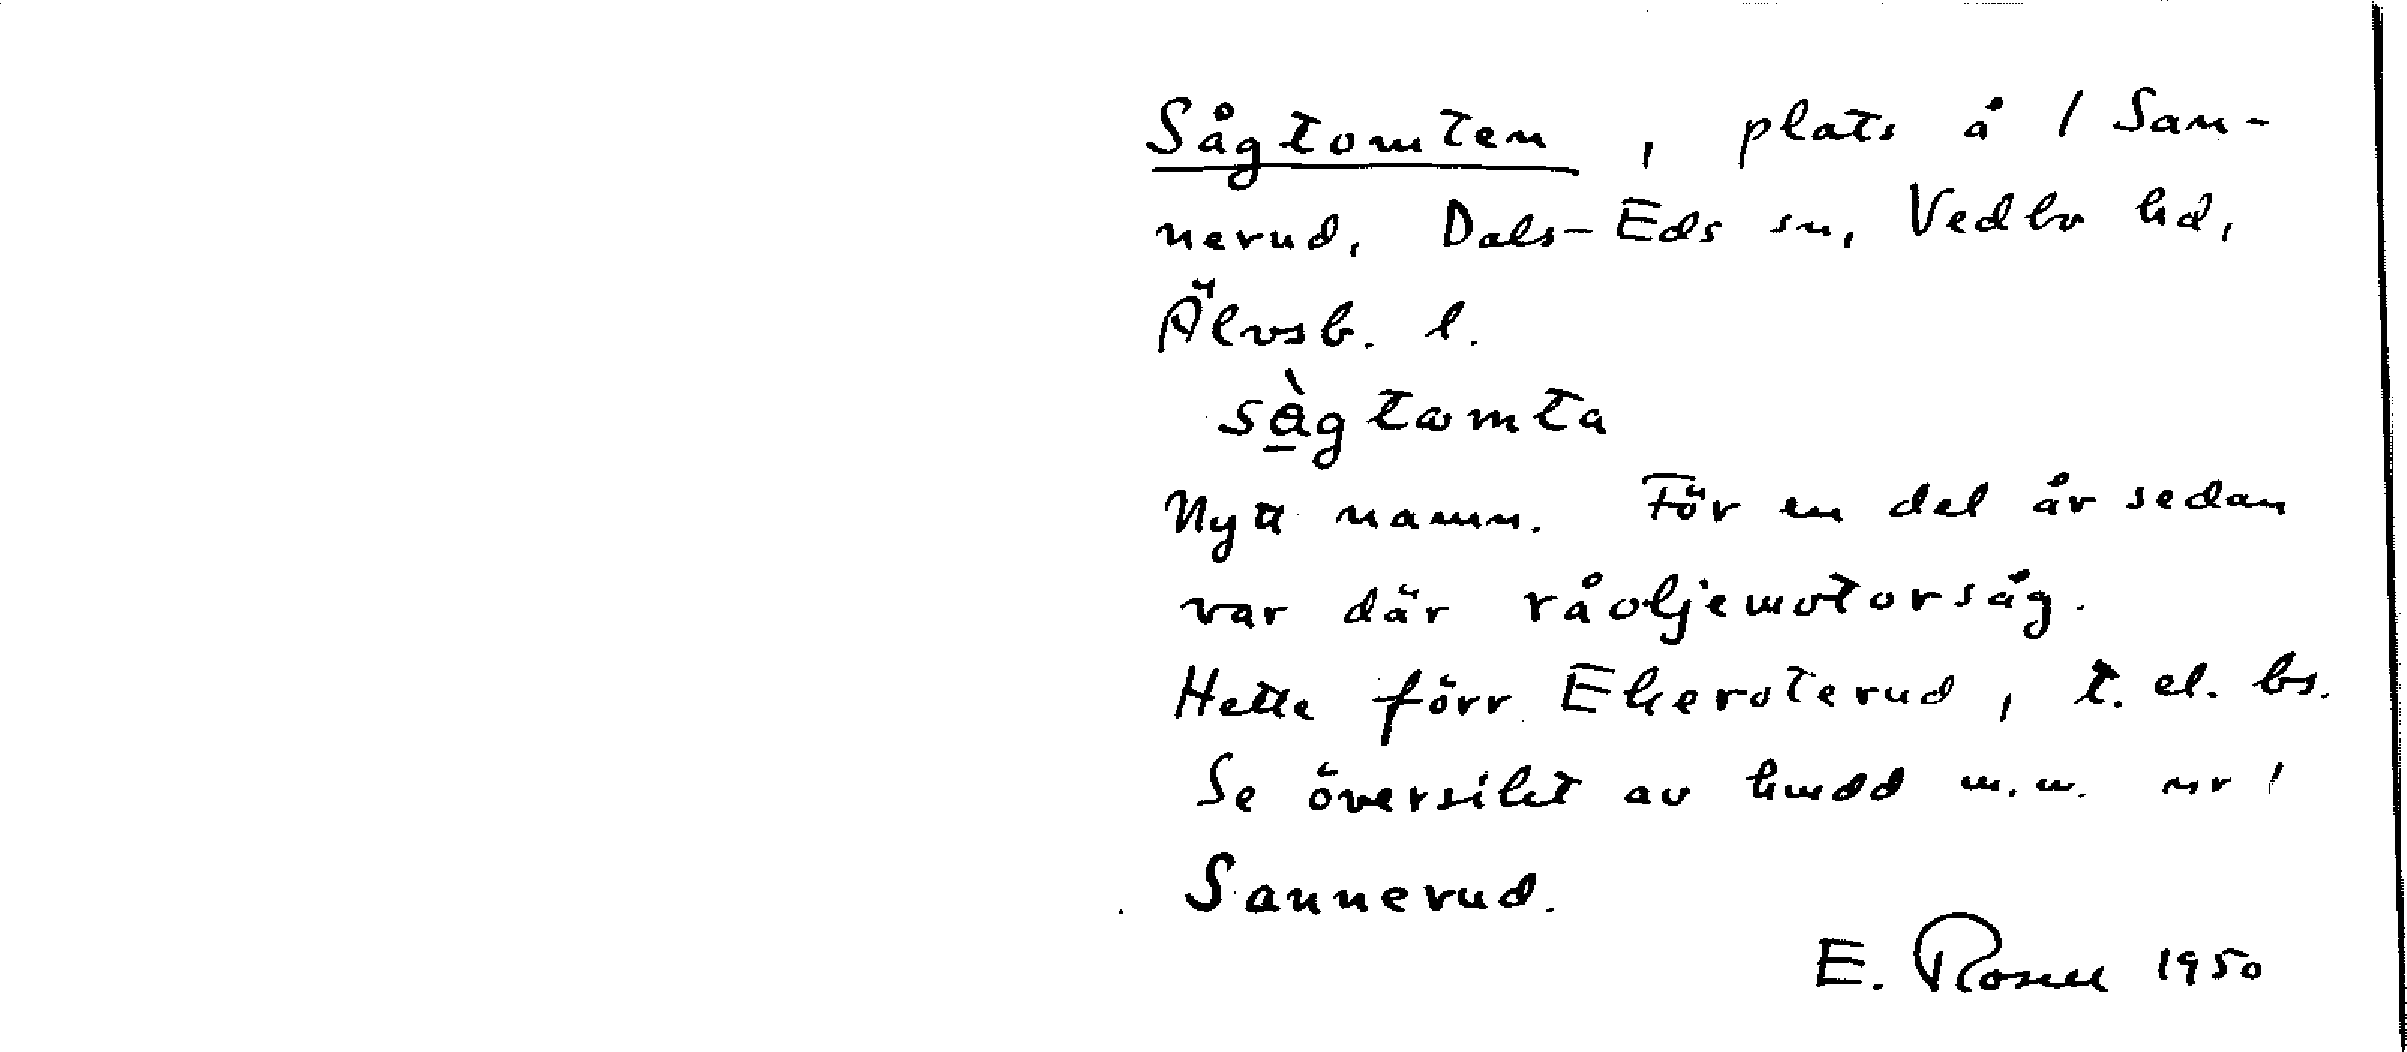 Sågtomten, plats å 1 San-
nerud, Dals-Eds sn, Vedbo hd,
Älvsb. l.
sàgtωmta
Nytt namn. För en del år sedan
var där råoljemotorsåg.
Hette förr Ekeroterud, t. el. bs.
Se översikt av hmdd m.m. nr 1
Sannerud.
E. Rosell 1950